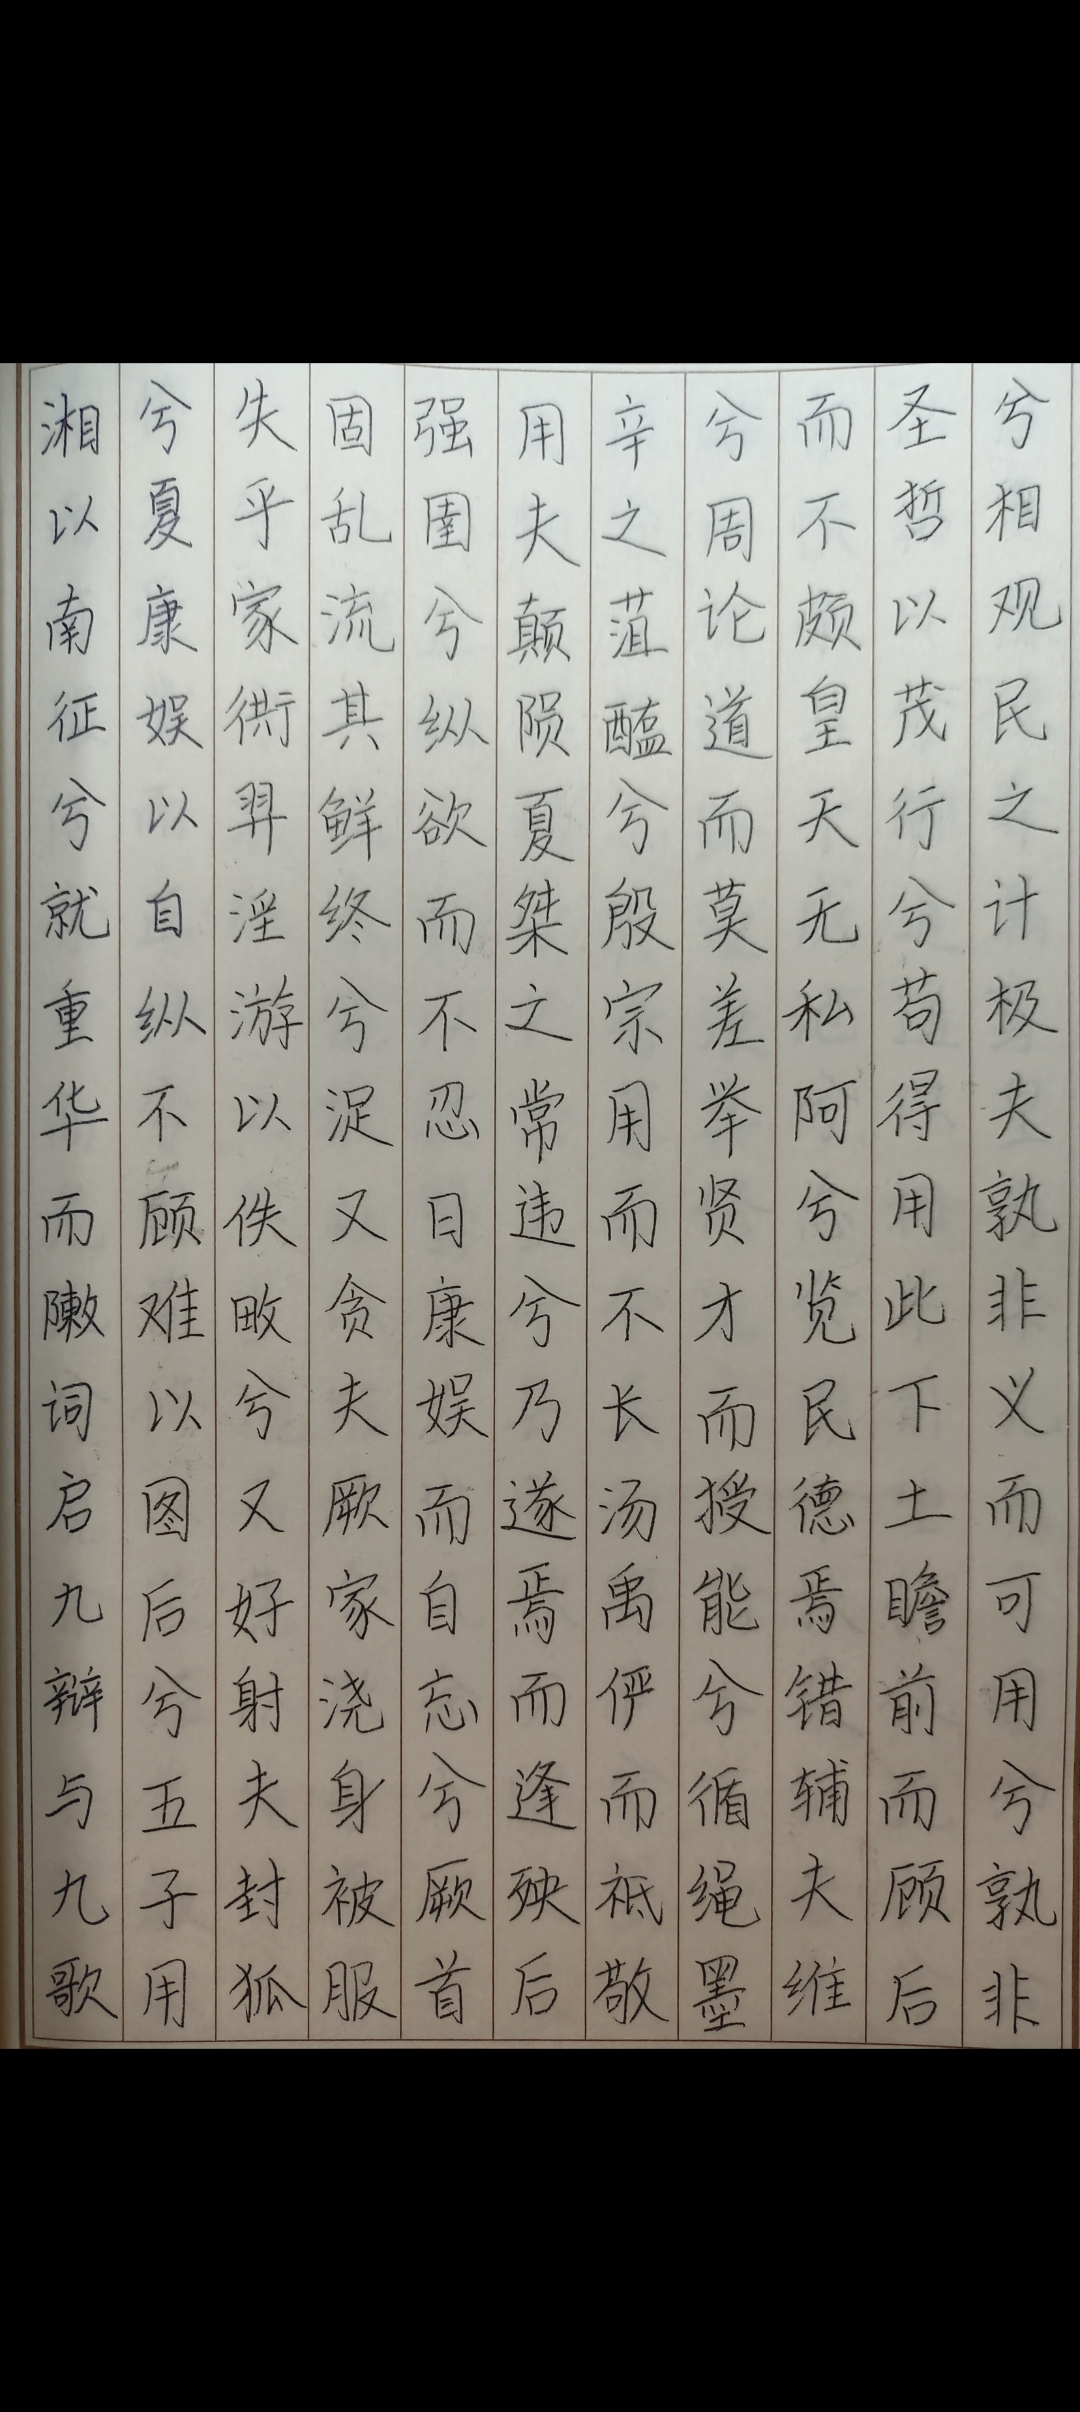 湘以南征兮就重华而敶词启九辩与九歌
兮夏康娱以自纵不顾难以图后兮五子用
失乎家衖羿淫游以佚畋兮又好射夫封狐
固乱流其鲜终兮浞又贪夫厥家浇身被服
强圉兮纵欲而不忍日康娱而自忘兮厥首
用夫颠陨夏桀之常违兮乃遂焉而逢殃后
辛之菹醢兮殷宗用而不长汤禹俨而祗敬
兮周论道而莫差举贤才而授能兮循绳墨
而不颇皇天无私阿兮览民德焉错辅夫维
圣哲以茂行兮苟得用此下土瞻前而顾后
兮相观民之计极夫孰非义而可用兮孰非